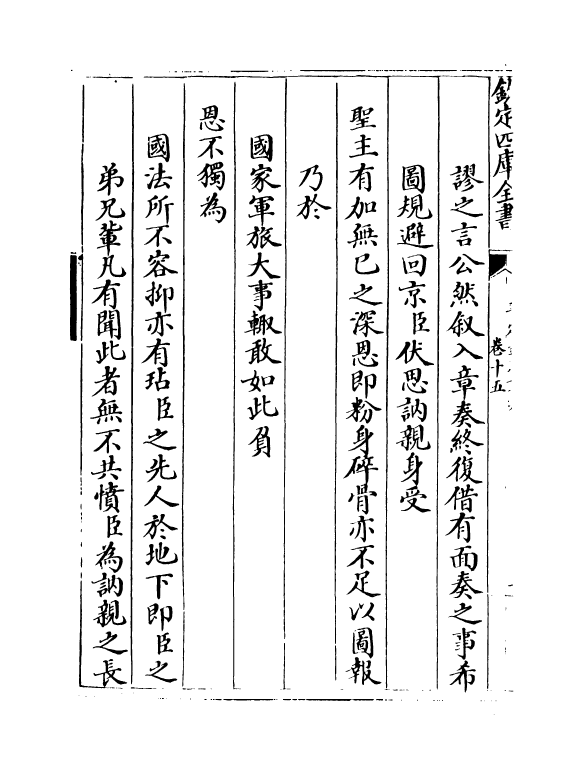 欽定四庫全書
卷十五
謬之言公然叙入章奏終復借有面奏之事希
圖規避回京臣伏思訥親身受
聖主有加無已之深恩即粉身碎骨亦不足以圖報
乃於
國家軍旅大事輙敢如此負
恩不獨為
國法所不容抑亦有玷臣之先人於地下即臣之
弟兄輩凡有聞此者無不共憤臣為訥親之長